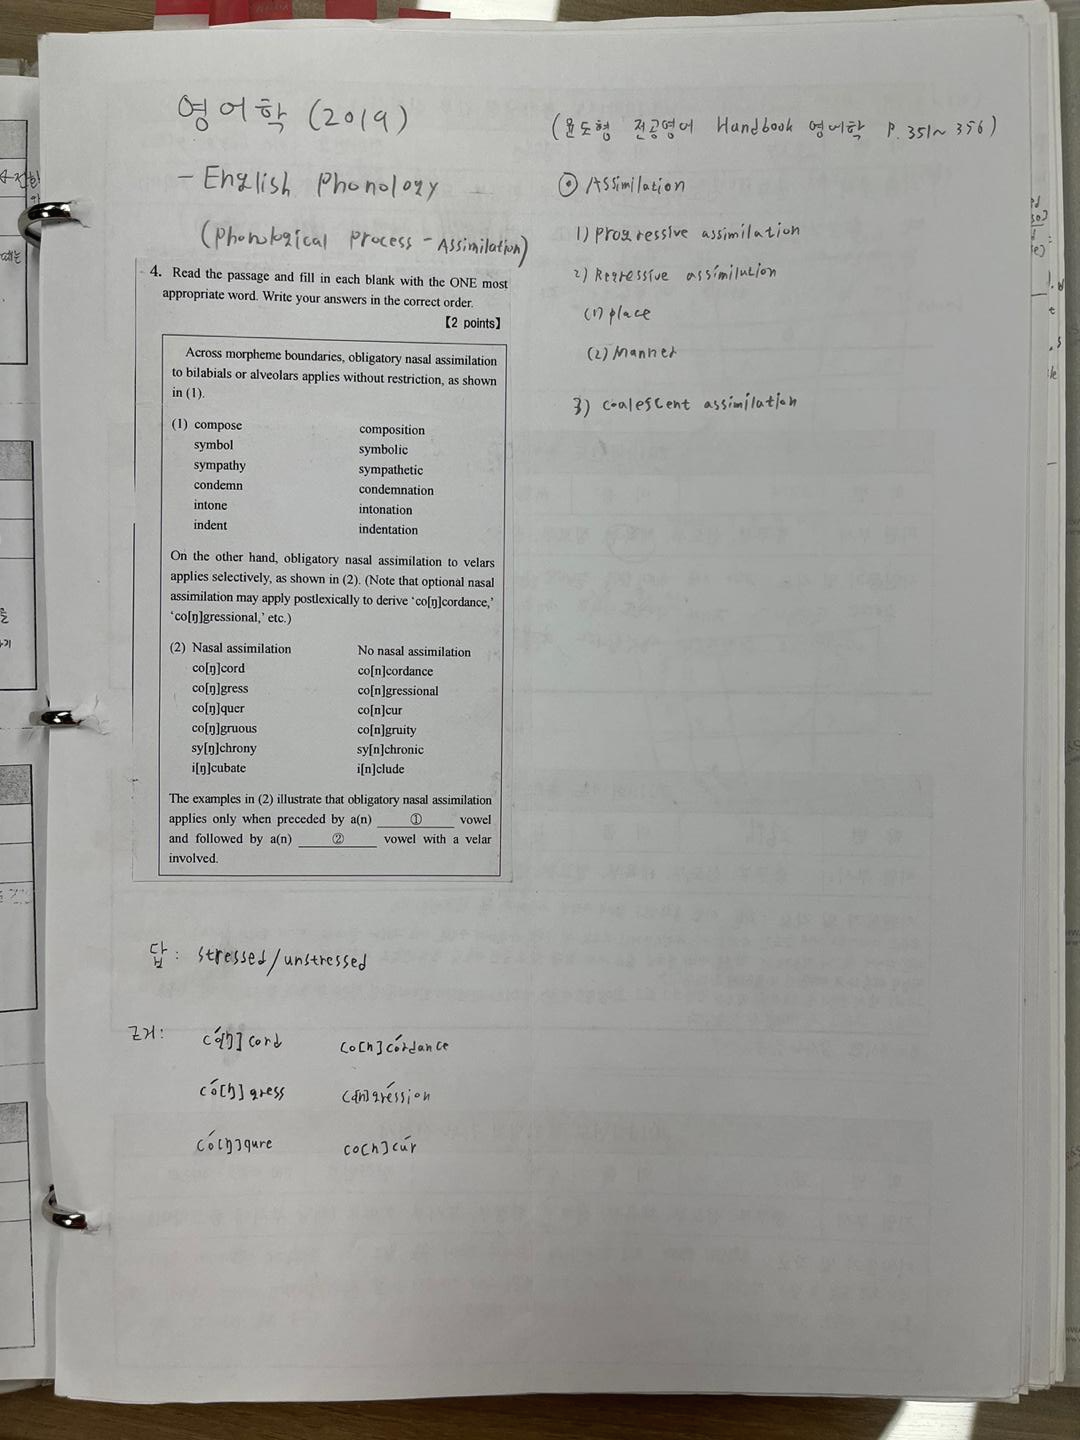 영어학 (2019)
- English Phonology
(Phonological Process - Assimilation)
(윤도형 전공영어 Handbook 영어학 P. 351~356)
⊙ Assimilation
1) Progressive assimilation
2) Regressive assimilution
(1) place
(2) Manner
3) Coalescent assimilation
4. Read the passage and fill in each blank with the ONE most
appropriate word. Write your answers in the correct order.
【2 points】
Across morpheme boundaries, obligatory nasal assimilation
to bilabials or alveolars applies without restriction, as shown
in (1).
(1) compose composition
symbol symbolic
sympathy sympathetic
condemn condemnation
intone intonation
indent indentation
On the other hand, obligatory nasal assimilation to velars
applies selectively, as shown in (2). (Note that optional nasal
assimilation may apply postlexically to derive ‘co[ŋ]cordance,’
‘co[ŋ]gressional,’ etc.)
(2) Nasal assimilation No nasal assimilation
co[ŋ]cord co[n]cordance
co[ŋ]gress co[n]gressional
co[ŋ]quer co[n]cur
co[ŋ]gruous co[n]gruity
sy[ŋ]chrony sy[n]chronic
i[ŋ]cubate i[n]clude
The examples in (2) illustrate that obligatory nasal assimilation
applies only when preceded by a(n) ① vowel
and followed by a(n) ② vowel with a velar
involved.
답: stressed/unstressed
근거: có[ŋ]cord co[n]córdance
có[ŋ]gress co[n]gréssion
có[ŋ]qure co[n]cúr